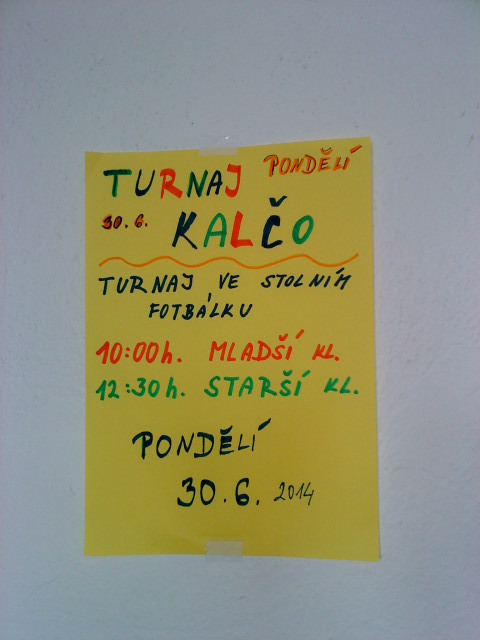 TURNAJ PONDĚLÍ
30.6. KALČO
TURNAJ VE STOLNÍM
FOTBÁLKU
10:00h. MLADŠÍ KL.
12:30h. STARŠÍ KL.
PONDĚLÍ
30.6. 2014